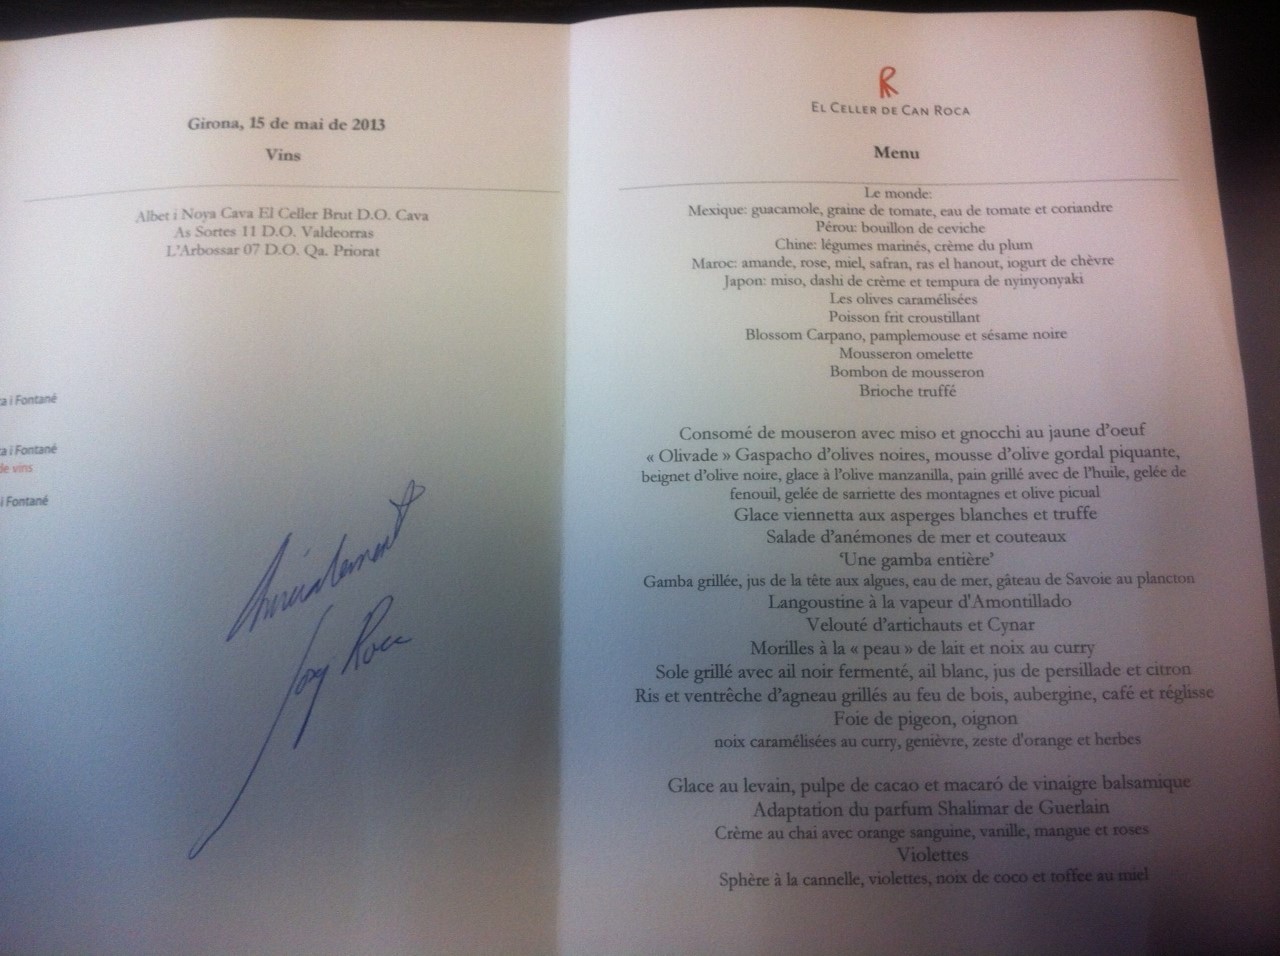 Girona, 15 de mai de 2013
Vins
Albet i Noya Cava El Celler Brut D.O. Cava
As Sortes 11 D.O. Valdeorras
L'Arbossar 07 D.O. Qa. Priorat
a i Fontané
a i Fontané
de vins
i Fontané
Amicalement
Josep Roca
R
EL CELLER DE CAN ROCA
Menu
Le monde:
Mexique: guacamole, graine de tomate, eau de tomate et coriandre
Pérou: bouillon de ceviche
Chine: légumes marinés, crème du plum
Maroc: amande, rose, miel, safran, ras el hanout, iogurt de chèvre
Japon: miso, dashi de crème et tempura de nyinyonyaki
Les olives caramélisées
Poisson frit croustillant
Blossom Carpano, pamplemouse et sésame noire
Mousseron omelette
Bombon de mousseron
Brioche truffé
Consomé de mouseron avec miso et gnocchi au jaune d'oeuf
« Olivade » Gaspacho d'olives noires, mousse d'olive gordal piquante,
beignet d'olive noire, glace à l'olive manzanilla, pain grillé avec de l'huile, gelée de
fenouil, gelée de sarriette des montagnes et olive picual
Glace viennetta aux asperges blanches et truffe
Salade d'anémones de mer et couteaux
'Une gamba entière'
Gamba grillée, jus de la tête aux algues, eau de mer, gâteau de Savoie au plancton
Langoustine à la vapeur d'Amontillado
Velouté d'artichauts et Cynar
Morilles à la « peau » de lait et noix au curry
Sole grillé avec ail noir fermenté, ail blanc, jus de persillade et citron
Ris et ventrêche d'agneau grillés au feu de bois, aubergine, café et réglisse
Foie de pigeon, oignon
noix caramélisées au curry, genièvre, zeste d'orange et herbes
Glace au levain, pulpe de cacao et macaró de vinaigre balsamique
Adaptation du parfum Shalimar de Guerlain
Crème au chai avec orange sanguine, vanille, mangue et roses
Violettes
Sphère à la cannelle, violettes, noix de coco et toffee au miel